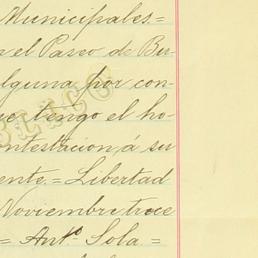 Municipales=
el Paseo de Bu-
alguna por con-
tengo el ho-
ontestacion á su
ente.= Libertad
Noviembre trece
= Ant.º Sola =